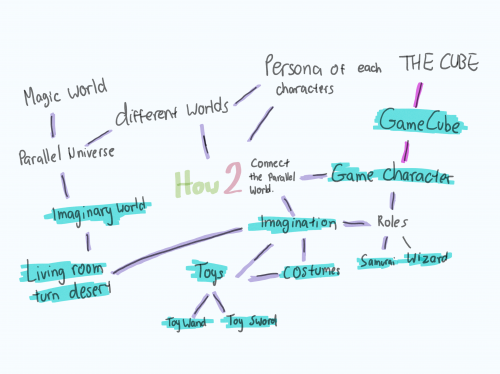 Persona of each
characters
THE CUBE
Magic world
different worlds
GameCube
Parallel Universe
How 2
Connect
the Parallel
World.
Game character
Imaginary world
Imagination
Roles
Living room
turn desert
Toys
Costumes
Samurai
Wizard
Toy Wand
Toy Sword